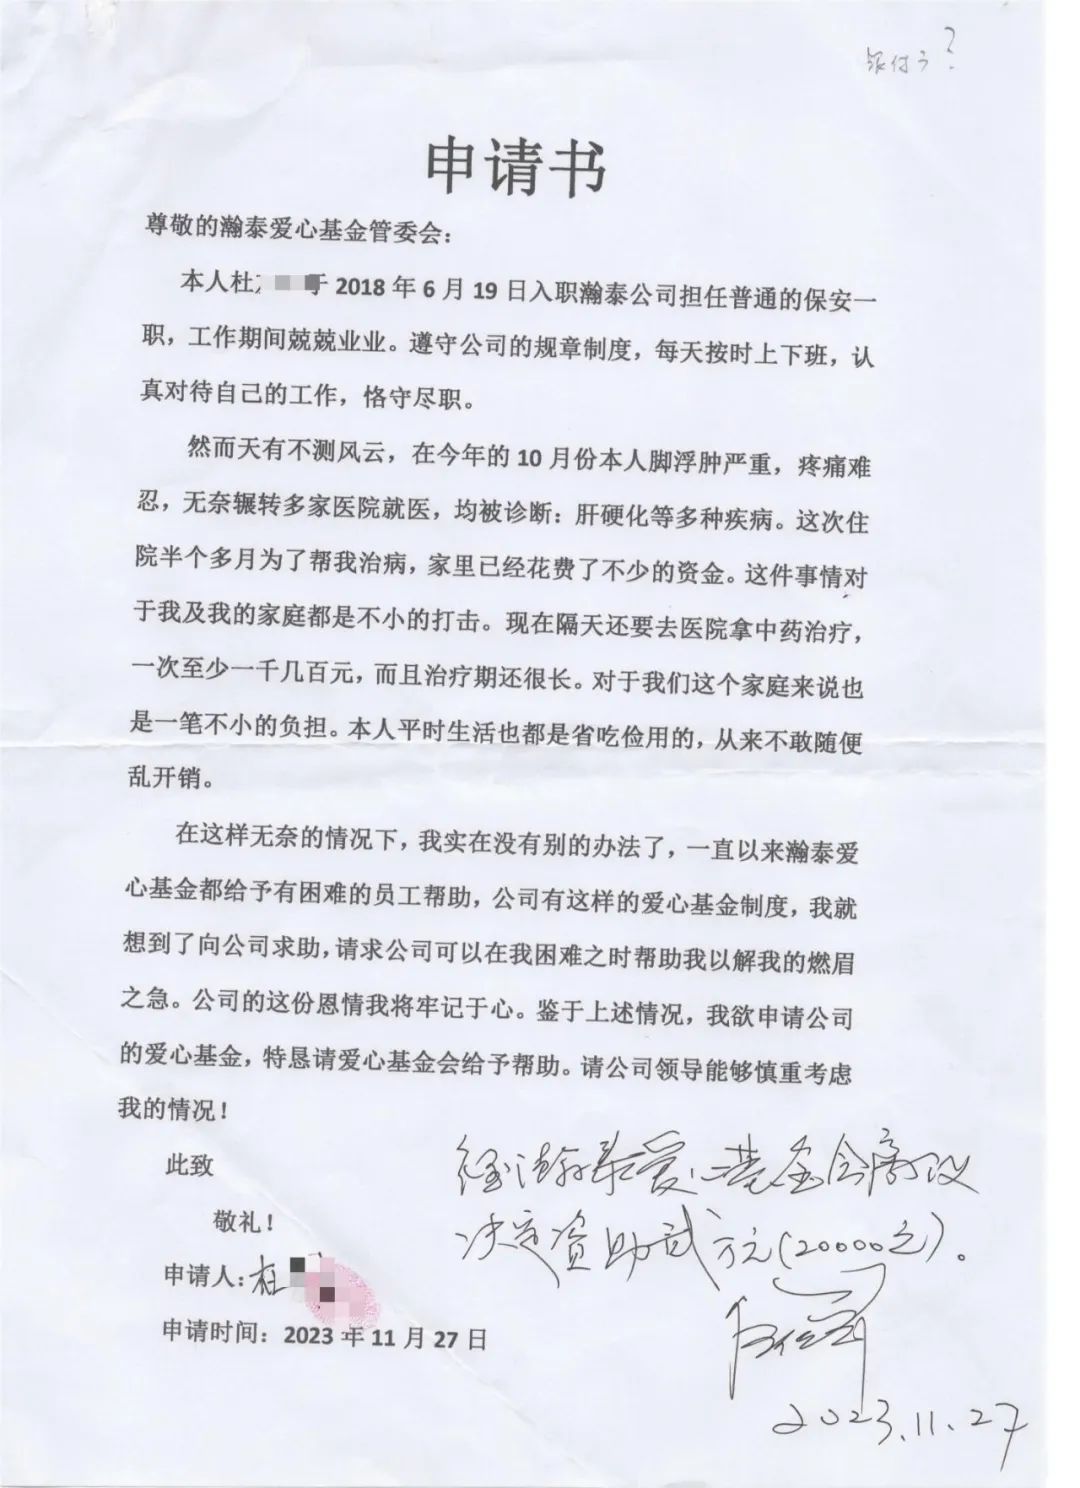 申请书
尊敬的瀚泰爱心基金管委会：
本人杜 于 2018 年 6 月 19 日入职瀚泰公司担任普通的保安一
职，工作期间兢兢业业。遵守公司的规章制度，每天按时上下班，认
真对待自己的工作，恪守尽职。
然而天有不测风云，在今年的 10 月份本人脚浮肿严重，疼痛难
忍，无奈辗转多家医院就医，均被诊断：肝硬化等多种疾病。这次住
院半个多月为了帮我治病，家里已经花费了不少的资金。这件事情对
于我及我的家庭都是不小的打击。现在隔天还要去医院拿中药治疗，
一次至少一千几百元，而且治疗期还很长。对于我们这个家庭来说也
是一笔不小的负担。本人平时生活也都是省吃俭用的，从来不敢随便
乱开销。
在这样无奈的情况下，我实在没有别的办法了，一直以来瀚泰爱
心基金都给予有困难的员工帮助，公司有这样的爱心基金制度，我就
想到了向公司求助，请求公司可以在我困难之时帮助我以解我的燃眉
之急。公司的这份恩情我将牢记于心。鉴于上述情况，我欲申请公司
的爱心基金，特恳请爱心基金会给予帮助。请公司领导能够慎重考虑
我的情况！
此致
敬礼！
经瀚泰爱心基金会商议
决定资助贰万元(20000元)。
申请人：杜
申请时间：2023 年 11 月 27 日
2023.11.27